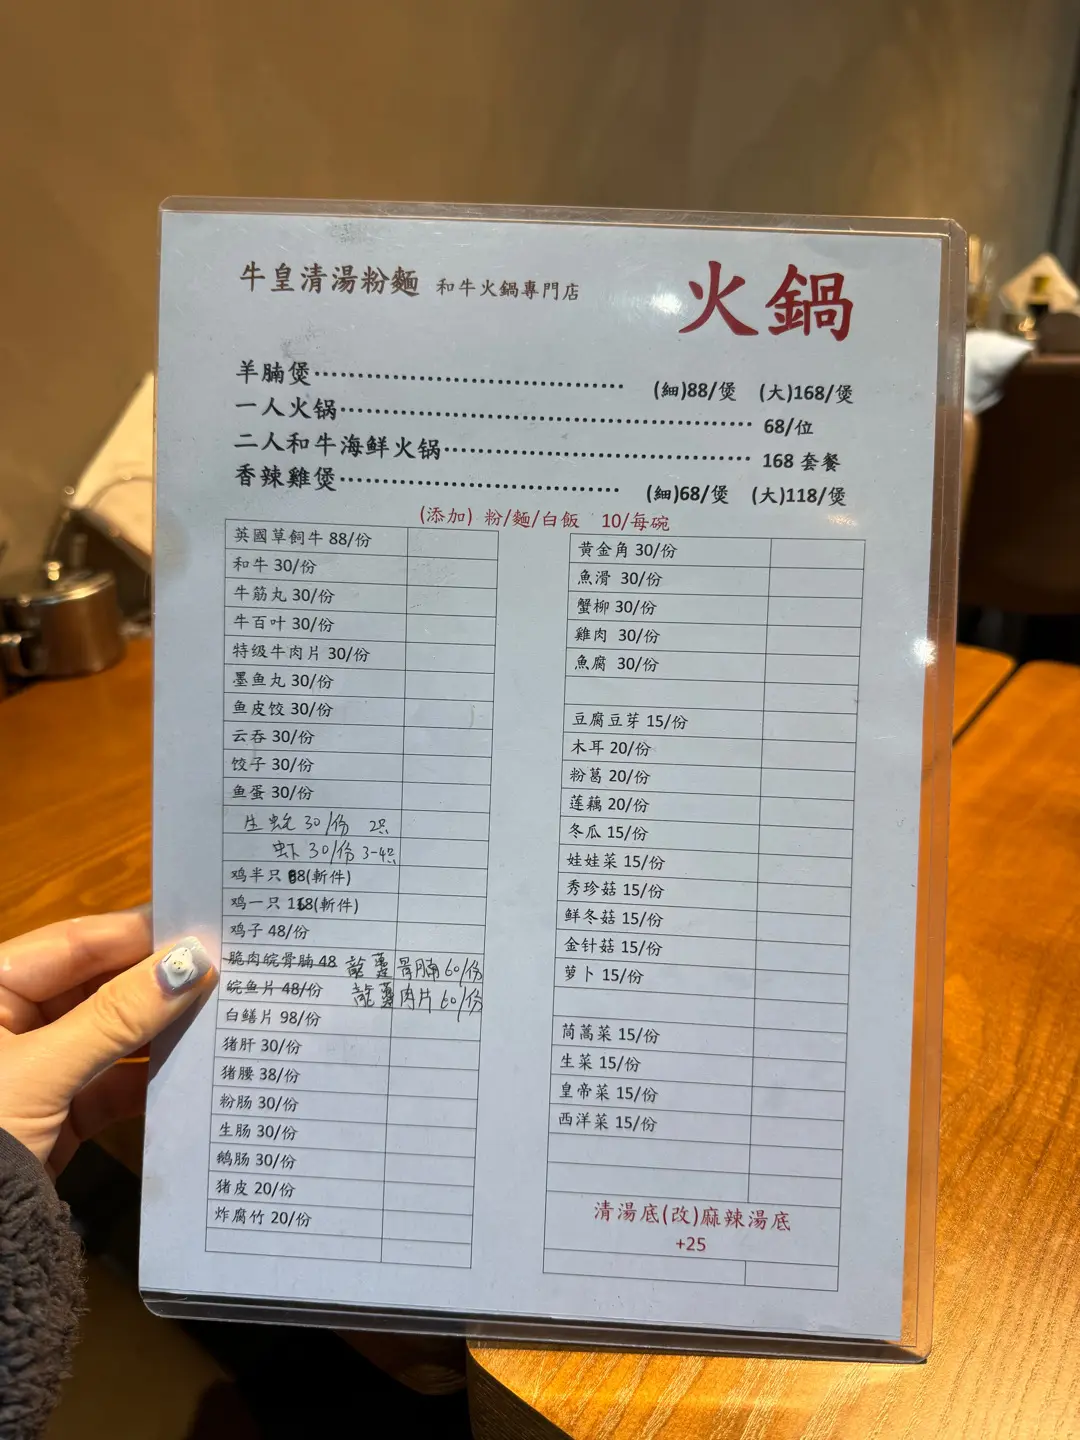 牛皇清湯粉麵 和牛火鍋專門店
火鍋
羊腩煲 (細)88/煲 (大)168/煲
一人火锅 68/位
二人和牛海鲜火锅 168 套餐
香辣雞煲 (細)68/煲 (大)118/煲
(添加) 粉/麵/白飯 10/每碗
英國草飼牛 88/份
和牛 30/份
牛筋丸 30/份
牛百叶 30/份
特级牛肉片 30/份
墨鱼丸 30/份
鱼皮饺 30/份
云吞 30/份
饺子 30/份
鱼蛋 30/份
生蚝 30/份 2只
虾 30/份 3-4只
鸡半只 88(斬件)
鸡一只 (斬件)
鸡子 48/份
脆肉皖骨腩 48 龍躉骨腩 60/份
皖鱼片 48/份 龍躉肉片 60/份
白鳝片 98/份
猪肝 30/份
猪腰 38/份
粉肠 30/份
生肠 30/份
鹅肠 30/份
猪皮 20/份
炸腐竹 20/份
黄金角 30/份
魚滑 30/份
蟹柳 30/份
雞肉 30/份
魚腐 30/份
豆腐豆芽 15/份
木耳 20/份
粉葛 20/份
莲藕 20/份
冬瓜 15/份
娃娃菜 15/份
秀珍菇 15/份
鲜冬菇 15/份
金针菇 15/份
萝卜 15/份
茼蒿菜 15/份
生菜 15/份
皇帝菜 15/份
西洋菜 15/份
清湯底(改)麻辣湯底
+25